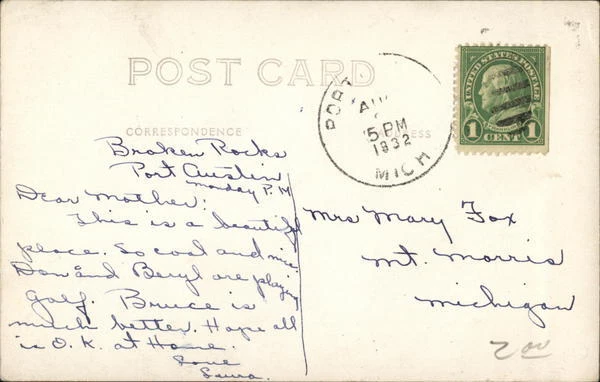 POST CARD
CORRESPONDENCE
PORT
AU
5 PM
1932
MICH
UNITED STATES POSTAGE
1 CENT 1
Broken Rocks
Port Austin
Monday P.M.
Dear Mother:
This is a beautiful
place. So cool and nice.
Don and Beryl are playing
golf. Bruce is
much better. Hope all
is O.K. at Home.
Love
Laura.
Mrs Mary Fox
Mt. Morris
Michigan
2 00